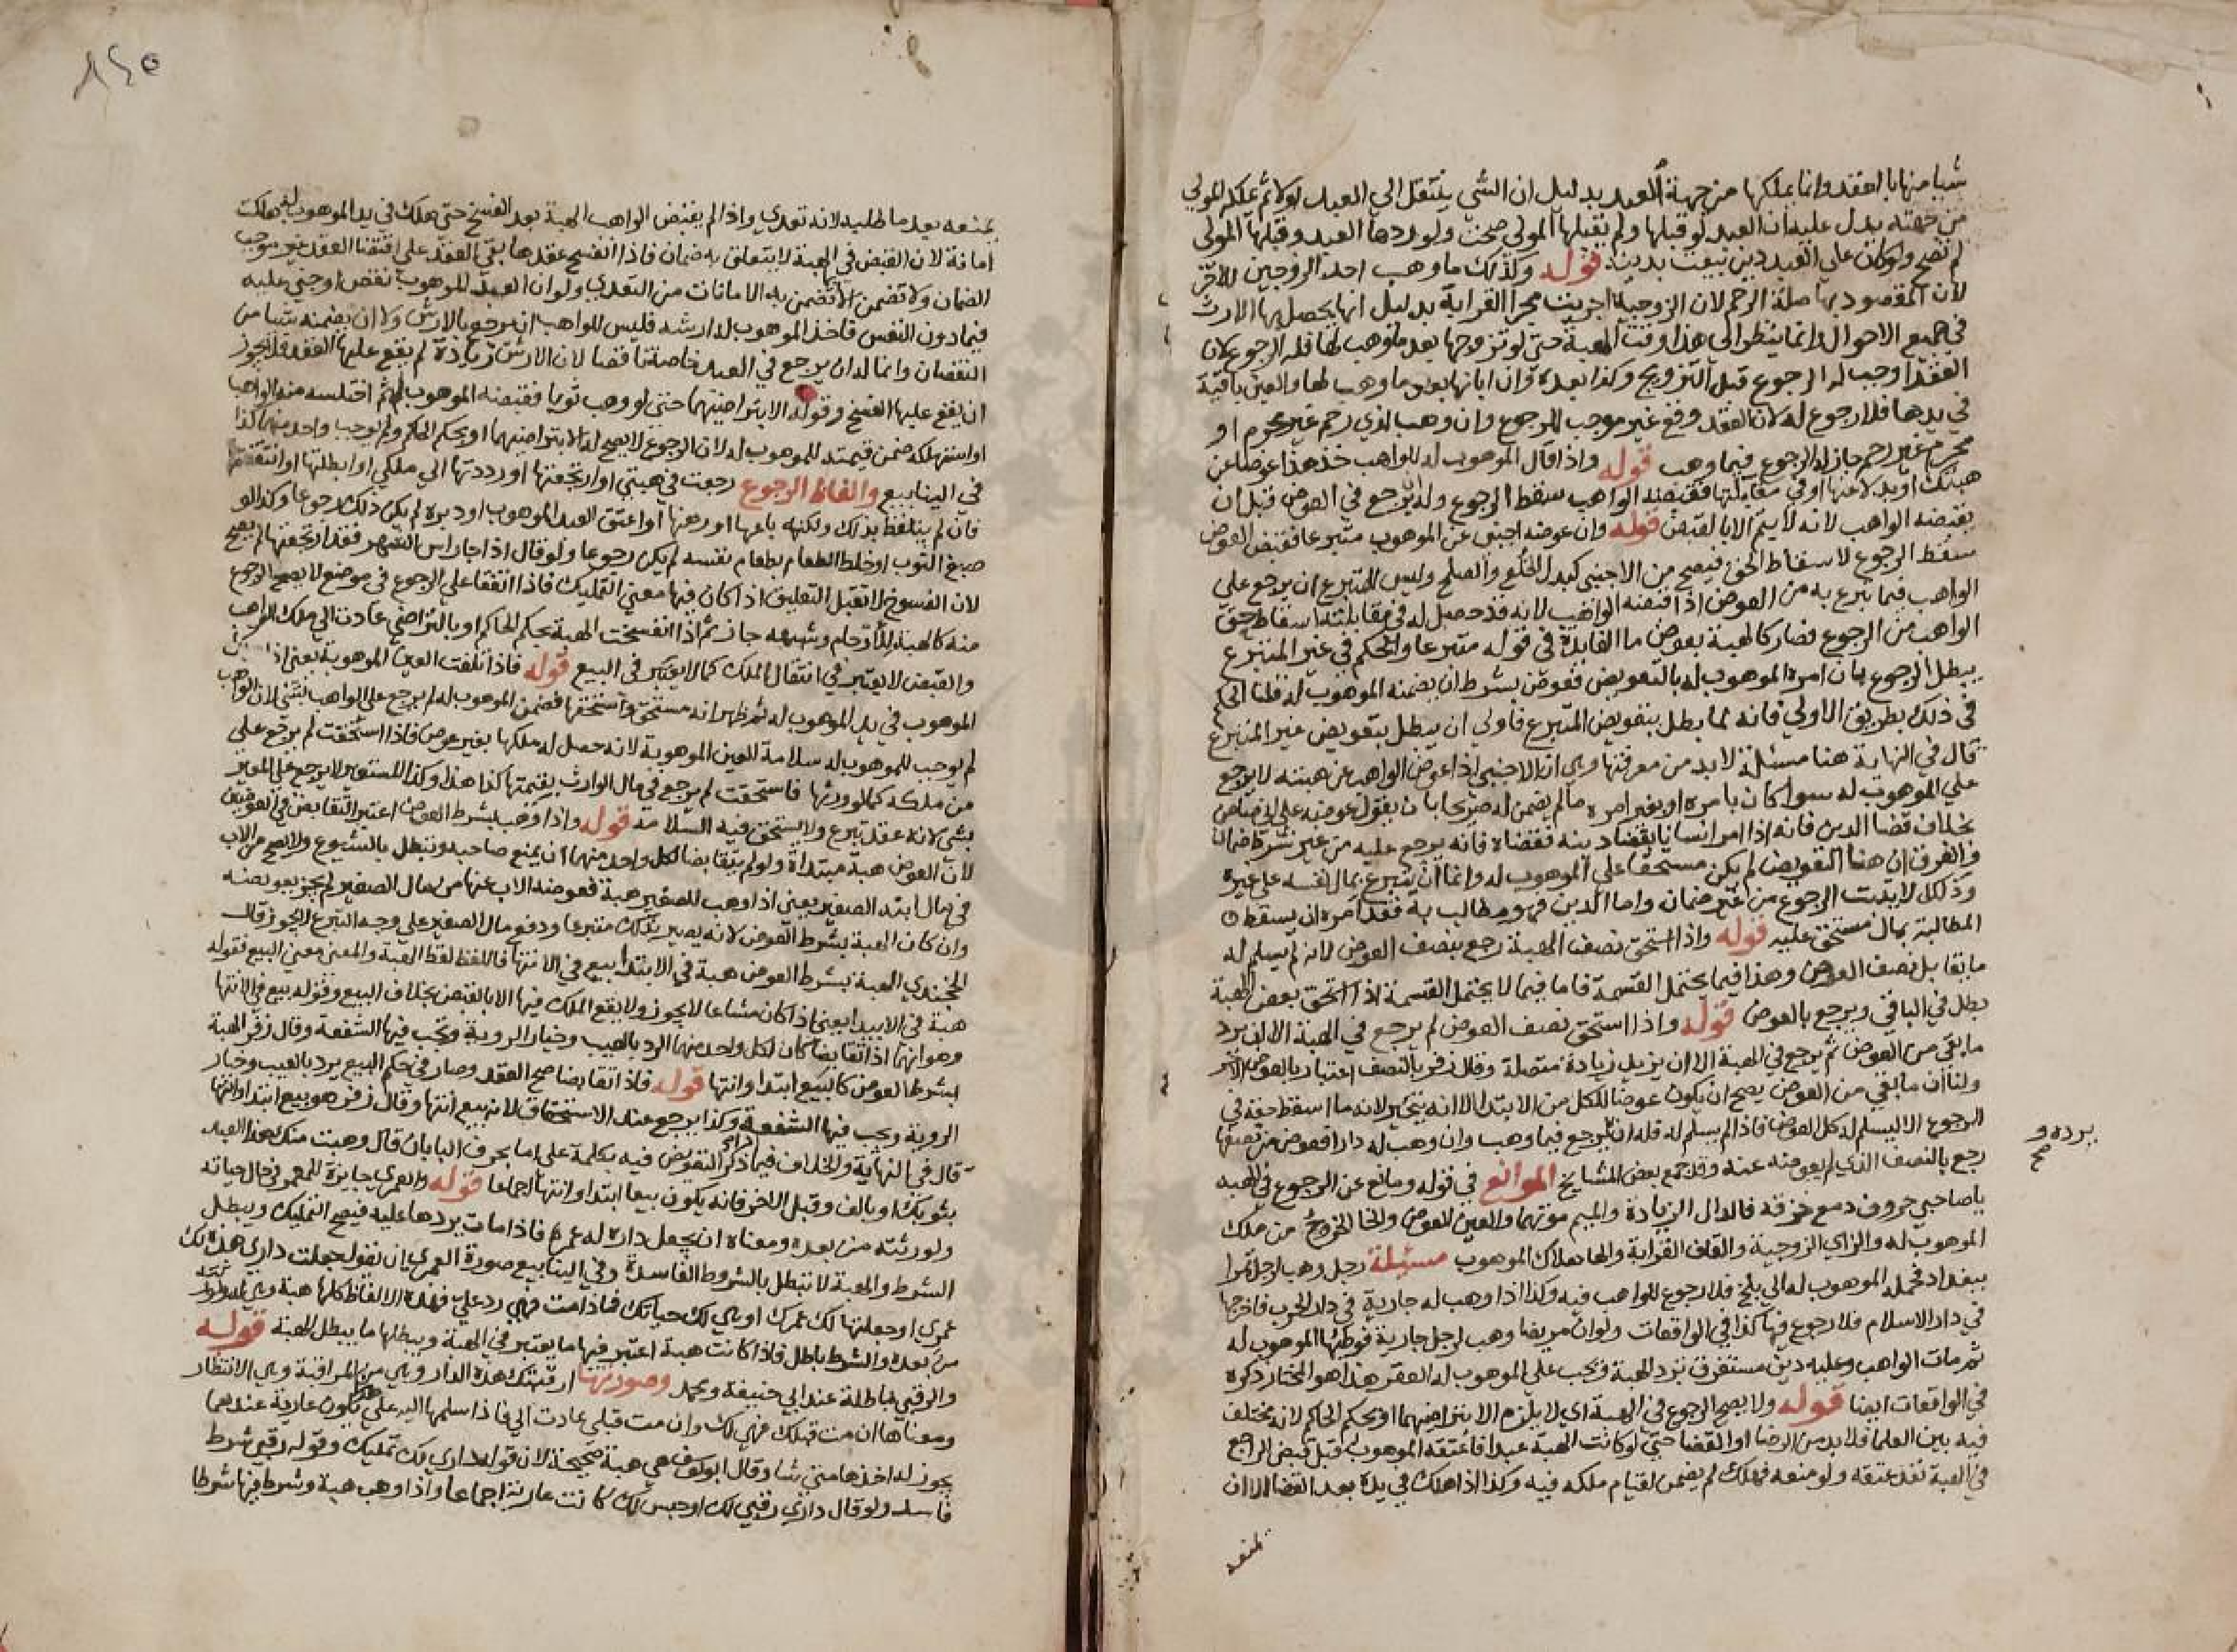 شيا منها بالعقد وانما يملكها من جهة العبد بدليل ان الشي ينتقل الي العبد اولا ثم يملكه المولي
من جهته يدل عليه ان العبد لو قبلها ولم يقبلها المولي صحت ولو ردها العبد وقبلها المولي
لم تصح ولو كان علي العبد دين بيعت بدينه قوله وكذلك ما وهب احد الزوجين للاخر
لان المقصود بها صلة الرحم لان الزوجية اجريت مجرا القرابة بدليل انها يحصل بها الارث
في جميع الاحوال وانما ينظر الي هذا وقت الهبة حتي لو تزوجها بعد ما وهب لها فله الرجوع لان
العقد اوجب له الرجوع قبل التزويج وكذا بعده وان ابانها بعد ما وهب لها والعين باقية
في يدها فلا رجوع له لان العقد وقع غير موجب للرجوع وان وهب لذي رحم غير محرم او
محرم غير رحم جاز له الرجوع فيما وهب قوله واذا قال الموهوب له للواهب خذ هذا عوضا عن
هبتك او بدلا عنها او في مقابلتها فقبضه الواهب سقط الرجوع وله ان يرجع في العوض قبل ان
يقبضه الواهب لانه لا يتم الا بالقبض قوله وان عوضه اجنبي عن الموهوب متبرعا فقبض العوض
سقط الرجوع لاسقاط الحق فيصح من الاجنبي كبدل الخلع والصلح وليس للمتبرع ان يرجع علي
الواهب فيما تبرع به من العوض اذا قبضه الواهب لانه قد حصل له في مقابلته اسقاط حق
الواهب من الرجوع فصار كالهبة بعوض ما الفايدة في قوله متبرعا والحكم في غير المتبرع
يبطل الرجوع بان امره الموهوب له بالتعويض فعوض بشرط ان يضمنه الموهوب له قلنا الحكم
في ذلك بطريق الاولي فانه لما بطل بتعويض المتبرع فاولي ان يبطل بتعويض غير المتبرع
قال في النهاية هنا مسئلة لا بد من معرفتها وهي ان الاجنبي اذا عوض الواهب عن هبته لا يرجع
علي الموهوب له سوا كان بامره او بغير امره ما لم يضمن له صريحا بان يقول عوضه علي اني ضامن
بخلاف قضا الدين فانه اذا امر انسانا بقضا دينه فقضاه فانه يرجع عليه من غير شرط ضمان
والفرق ان هنا التعويض لم يكن مستحقا علي الموهوب له وانما ان يتبرع بمال نفسه علي غيره
وذلك لا يثبت الرجوع من غير ضمان واما الدين فهو مطالب به فقد امره ان يسقط
المطالبة بمال مستحق عليه قوله واذا استحق نصف الهبة رجع بنصف العوض لانه لم يسلم له
ما يقابل نصف العوض وهذا فيما يحتمل القسمة فاما فيما لا يحتمل القسمة اذا استحق بعض الهبة
بطل في الباقي ويرجع بالعوض قوله واذا استحق نصف العوض لم يرجع في الهبة الا ان يرد
ما بقي من العوض ثم يرجع في الهبة الا ان يزيد زيادة متصلة وقال زفر بالنصف اعتبارا بالعوض الاخر
ولنا ان ما بقي من العوض يصح ان يكون عوضا للكل من الابتدا الا انه يتخير لانه ما اسقط حقه في
الرجوع الا ليسلم له كل العوض فاذا لم يسلم له فله ان يرجع فيما وهب وان وهب له دارا فعوض من نصفها
رجع بالنصف الذي لم يعوضه عنه وقد جمع بعض المشايخ الموانع في قوله ومانع عن الرجوع في الهبه
يا صاحبي حروف دمع خزقه فالدال الزيادة والميم موتهما والعين العوض والخا الخروج من ملك
الموهوب له والزاي الزوجية والقاف القرابة والها هلاك الموهوب مسئلة رجل وهب لرجل تمرا
ببغداد فحمله الموهوب له الي بلخ فلا رجوع للواهب فيه وكذا اذا وهب له جارية في دار الحرب فاخرجها
في دار الاسلام فلا رجوع فيها كذا في الواقعات ولو ان مريضا وهب لرجل جارية فوطئها الموهوب له
ثم مات الواهب وعليه دين مستغرق ترد الهبة ويجب علي الموهوب له العقر هذا هو المختار ذكره
في الواقعات ايضا قوله ولا يصح الرجوع في الهبة اي لا يلزم الا بتراضيهما او بحكم الحاكم لانه مختلف
فيه بين العلما فلا بد من الرضا او القضا حتي لو كانت الهبة عبدا فاعتقه الموهوب قبل قبض الراجع
في الهبة نفذ عتقه ولو منعه فهلك لم يضمن لقيام ملكه فيه وكذا اذا هلك في يده بعد القضا الا ان
يمنعه
يرده و
صح
٨٤٥
يمنعه بعد ما طلبه لانه تعدي واذا لم يقبض الواهب الهبة بعد الفسخ حتي هلك في يد الموهوب له هلكت
امانة لان القبض في الهبة لا يتعلق به ضمان فاذا انفسخ عقدها بقي القبض علي ما اقتضا العقد غير موجب
الضمان ولا تضمن الا بما تضمن به الامانات من التعدي ولو ان العبد الموهوب نقص او جني عليه
فيما دون النفس فاخذ الموهوب له ارشه فليس للواهب ان يرجع بالارش ولا ان يضمنه شيا من
النقصان وانما له ان يرجع في العبد خاصة ناقصا لان الارش زيادة لم يقع عليها العقد فلا يجوز
ان يقع عليها الفسخ وقوله الا بتراضيهما حتي لو وهب ثوبا فقبضه الموهوب له ثم اختلسه منه الواهب
او استهلكه ضمن قيمته للموهوب له لان الرجوع لا يصح له الا بتراضيهما او بحكم الحاكم ولم يوجب واحد منهما كذا
في الينابيع والفاظ الرجوع رجعت في هبتي او ارتجعتها او رددتها الي ملكي او ابطلتها او انتقضتها
فان لم يتلفظ بذلك ولكنه باعها او رهنها او اعتق العبد الموهوب او دبره لم يكن ذلك رجوعا وكذا لو
صبغ الثوب او خلط الطعام بطعام نفسه لم يكن رجوعا ولو قال اذا جا راس الشهر فقد ارتجعتها لم يصح
لان الفسوخ لا تقبل التعليق اذا كان فيها معني التمليك فاذا اتفقا علي الرجوع في موضع لا يصح الرجوع
منه كالهبة للارحام وشبهه جاز ثم اذا انفسخت الهبة بحكم الحاكم او بالتراضي عادت الي ملك الواهب
والقبض لا يعتبر في انتقال الملك كما لا يعتبر في البيع قوله فاذا تلفت العين الموهوبة يعني اذا
الموهوب في يد الموهوب له ثم ظهر انه مستحق واستحقها فضمن الموهوب له لم يرجع علي الواهب بشي لان الواهب
لم يوجب للموهوب له سلامة العين الموهوبة لانه حصل له ملكها بغير عوض فاذا استحقت لم يرجع علي
من ملكه كما لو ورثها فاستحقت لم يرجع في مال الوارث بقيمتها كذا هذا وكذا المستعير لا يرجع علي المعير
بشي لانه عقد تبرع ولا يستحق فيه السلامة قوله واذا وهب بشرط العوض اعتبر التقابض في العوضين
لان العوض هبة مبتداة ولو لم يتقابضا لكل واحد منهما ان يمنع صاحبه وتبطل بالشيوع ولا تصح من الاب
في مال ابنه الصغير يعني اذا وهب للصغير هبة فعوضه الاب عنها من مال الصغير لم يجز تعويضه
وان كان الهبة بشرط العوض لانه يصير بذلك متبرعا ودفع مال الصغير علي وجه التبرع لا يجوز قال
الخجندي الهبة بشرط العوض هبة في الابتدا بيع في الانتها فاللفظ لفظ الهبة والمعني معني البيع فقوله
هبة في الابتدا يعني اذا كان مشاعا لا يجوز ولا يقع الملك فيها الا بالقبض بخلاف البيع وقوله بيع في الانتها
وهو انهما اذا تقابضا كان لكل واحد منهما الرد بالعيب وخيار الروية وتجب فيها الشفعة وقال زفر الهبة
بشرط العوض كالبيع ابتدا وانتها قوله فاذا تقابضا صح العقد وصار في حكم البيع يرد بالعيب وخيار
الروية ويجب فيها الشفعة وكذا يرجع عند الاستحقاق لانه بيع انتها وقال زفر هو بيع ابتدا وانتها
قال في النهاية والخلاف فيما اذا ذكر التعويض فيه بكلمة علي اما بحرف البا بان قال وهبت منك هذا العبد
بثوبك او بالف وقبل الاخر فانه يكون بيعا ابتدا وانتها اجماعا قوله والعمري جايزة للمعمر في حال حياته
ولورثته من بعده ومعناه ان يجعل داره له عمره فاذا مات يردها عليه فيصح التمليك ويبطل
الشرط والهبة لا تبطل بالشروط الفاسدة وفي الينابيع صورة العمري ان يقول جعلت داري هذه لك
عمري او جعلتها لك عمرك او هي لك حياتك فاذا مت فهي رد علي فهذه الالفاظ كلها هبة وهي له ولورثته
من بعده والشرط باطل فاذا كانت هبة اعتبر فيها ما يعتبر في الهبة ويبطلها ما يبطل الهبة قوله
والرقبي باطلة عند ابي حنيفة ومحمد وصورتها ارقبتك هذه الدار وهي من المراقبة وهي الانتظار
ومعناها ان مت قبلك فهي لك وان مت قبلي عادت الي فاذا سلمها اليه علي هذا تكون عارية عندهما
يجوز له اخذها متي شا وقال ابو يوسف هي هبة صحيحة لان قوله داري لك تمليك وقوله رقبي شرط
فاسد ولو قال داري رقبي لك او حبس لك كانت عارية اجماعا واذا وهب هبة وشرط فيها شرطا